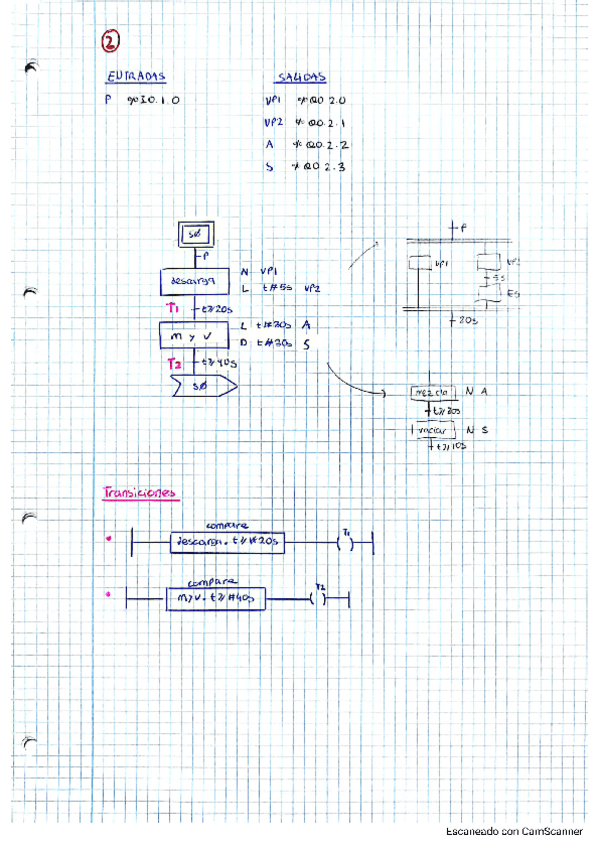 2
ENTRADAS SALIDAS
P %I0.1.0 VP1 %Q0.2.0
VP2 %Q0.2.1
A %Q0.2.2
S %Q0.2.3
S0
P
descarga N VP1
L t#5s VP2
T1 t≥20s
m y v L t#30s A
D t#30s S
T2 t≥40s
S0
P
VP1 VP2
5s
ES
20s
mezcla N A
t≥30s
vaciar N S
t≥10s
Transiciones
compare
descarga.t≥t#20s T1
compare
myv.t≥t#40s T2
Escaneado con CamScanner